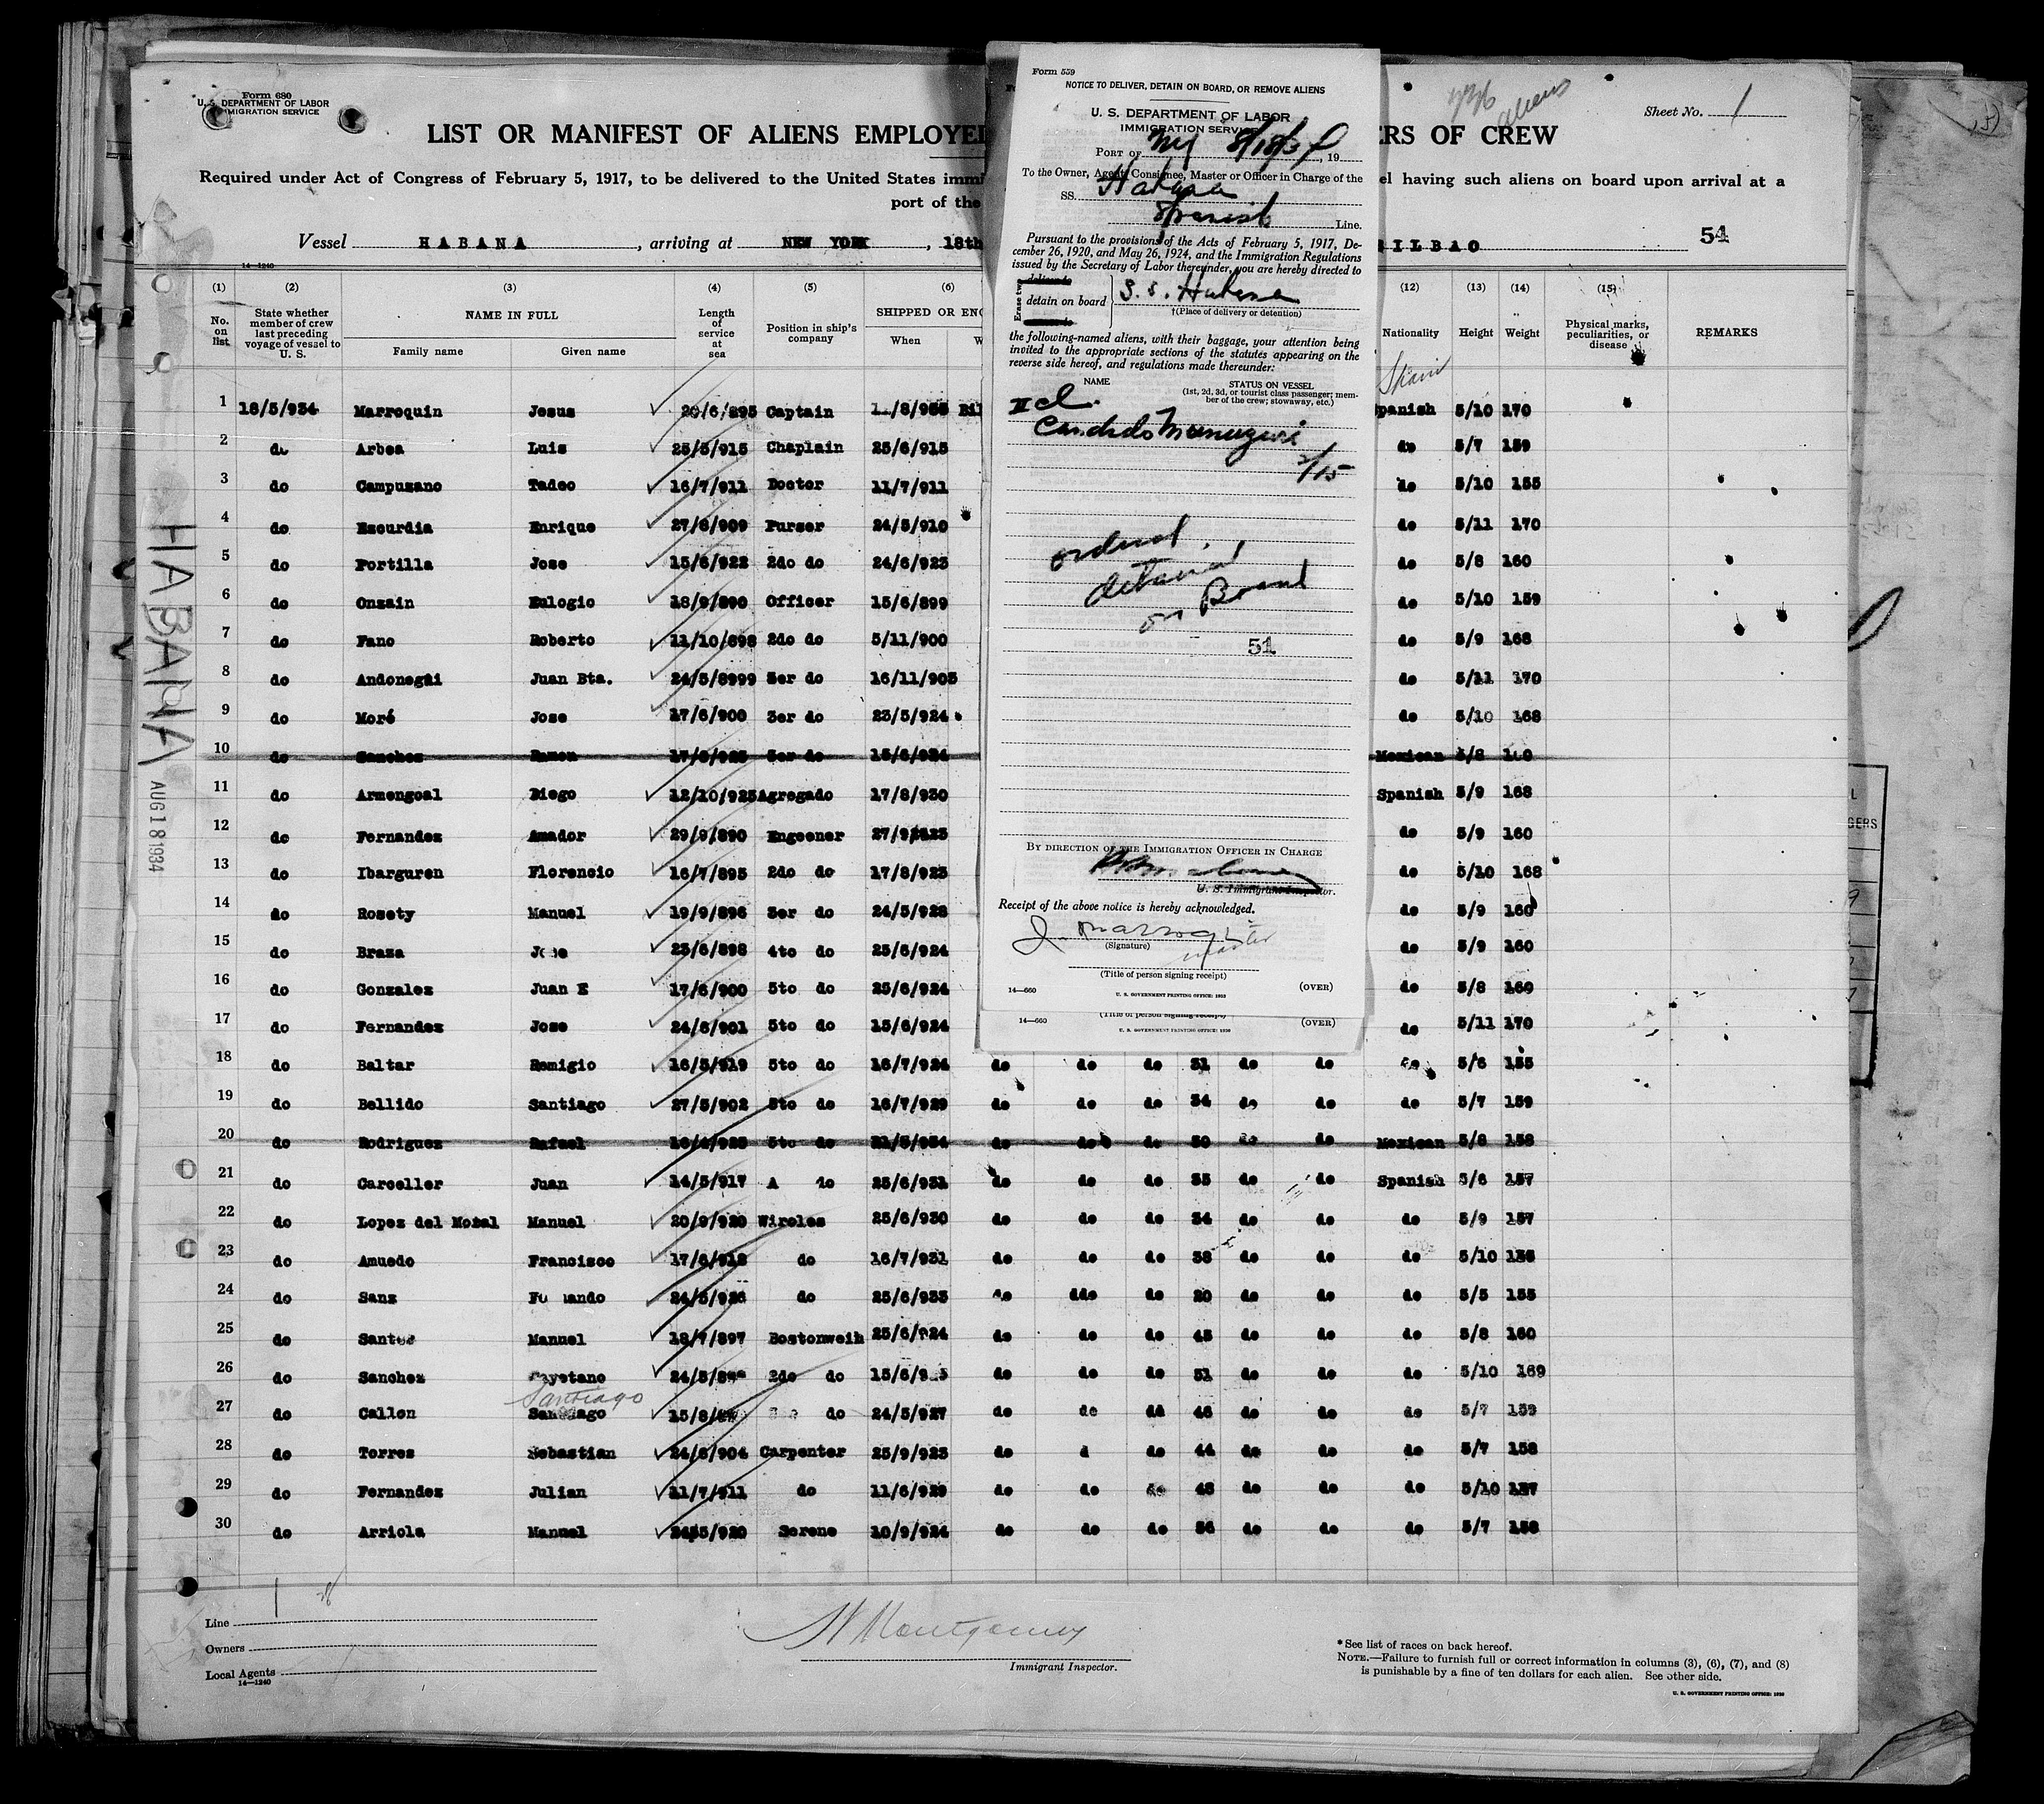 Form 680
U. S. DEPARTMENT OF LABOR
IMMIGRATION SERVICE
Sheet No. 1
aliens
LIST OR MANIFEST OF ALIENS EMPLOYED
ERS OF CREW
Required under Act of Congress of February 5, 1917, to be delivered to the United States immi
el having such aliens on board upon arrival at a
port of the
Vessel HABANA , arriving at NEW YORK , 18th
BILBAO 54
14-1240
(1) (2) (3) (4) (5) (6) (12) (13) (14) (15)
No. on list
State whether member of crew last preceding voyage of vessel to U. S.
NAME IN FULL
Family name Given name
Length of service at sea
Position in ship's company
SHIPPED OR ENG
When W
Nationality Height Weight
Physical marks, peculiarities, or disease
REMARKS
Spain
1 18/5/934 Marroquin Jesus 20/6/895 Captain Bil Spanish 5/10 170
2 do Arbea Luis 25/5/915 Chaplain 25/6/915 do 5/7 159
3 do Campuzano Tadeo 16/7/911 Doctor 11/7/911 do 5/10 155
4 do Ezcurdia Enrique 27/6/909 Purser 24/5/910 do 5/11 170
5 do Portilla Jose 15/6/922 2do do 24/6/923 do 5/8 160
6 do Onzain Eulogio 18/9/890 Officer 15/6/899 do 5/10 159
7 do Fano Roberto 11/10/898 2do do 5/11/900 do 5/9 168
8 do Andonegui Juan Bta. 24/5/8999 3er do 16/11/903 do 5/11 170
9 do Moré Jose 17/6/900 3er do 23/5/924 do 5/10 168
10 do Sanchez Ramon 3er do 15/6/924 Mexican 5/8
11 do Armengoal Diego 12/10/925 Agregado 17/8/930 Spanish 5/9 168
12 do Fernandez Amador 29/9/890 Engeener do 5/9 160
13 do Ibarguren Florencio 16/7/895 2do do 17/8/923 do 5/10 168
14 do Rosety Manuel 19/9/896 3er do 24/5/928 do 5/9 160
15 do Braza Jose 23/6/898 4to do 25/6/924 do 5/9 160
16 do Gonzalez Juan E 17/6/900 5to do 25/6/924 do 5/8 160
17 do Fernandez Jose 24/6/901 5to do 15/6/924 do 5/11 170
18 do Baltar Remigio 16/5/919 5to do 16/7/924 do do do 31 do do do 5/6 155
19 do Bellido Santiago 27/5/902 5to do 16/7/929 do do do 34 do do do 5/7 159
20 do Rodriguez Rafael 5to do do do do 30 do do Mexican 5/8 158
21 do Carceller Juan 14/5/917 A do 25/6/931 do do do 35 do do Spanish 5/6 157
22 do Lopez del Moral Manuel 20/9/920 Wireles 25/6/930 do do do 34 do do do 5/9 157
23 do Amuedo Francisco 17/6/918 do 16/7/931 do do do 38 do do do 5/10
24 do Sanz do 25/6/933 do ddo do 20 do do do 5/5 155
25 do Santos Manuel 18/7/897 Bostonweih 25/6/924 do do do 45 do do do 5/8 160
26 do Sanchez Cayetano 2do do do do do 51 do do do 5/10 169
Santiago
27 do Callen Santiago do 24/5/927 do do do 46 do do do 5/7 159
28 do Torres Sebastian 24/6/904 Carpenter 25/9/923 do d do 44 do do do 5/7 158
29 do Fernandez Julian 11/7/911 do 11/6/929 do do do 46 do do do 5/10 157
30 do Arriola Manuel Sereno 10/9/924 do do do 36 do do do 5/7 158
HABANA
AUG 18 1934
Line
Owners
Local Agents
14-1240
H Montgomery
Immigrant Inspector.
* See list of races on back hereof.
NOTE.—Failure to furnish full or correct information in columns (3), (6), (7), and (8)
is punishable by a fine of ten dollars for each alien. See other side.
U. S. GOVERNMENT PRINTING OFFICE: 1930
Form 559
NOTICE TO DELIVER, DETAIN ON BOARD, OR REMOVE ALIENS
U. S. DEPARTMENT OF LABOR
IMMIGRATION SERVICE
PORT OF NY 8/18/34, 19
To the Owner, Agent, Consignee, Master or Officer in Charge of the
SS. Habana
Spanish Line.
Pursuant to the provisions of the Acts of February 5, 1917, De-
cember 26, 1920, and May 26, 1924, and the Immigration Regulations
issued by the Secretary of Labor thereunder, you are hereby directed to
Erase two
detain on board
S. S. Habana
†(Place of delivery or detention)
the following-named aliens, with their baggage, your attention being
invited to the appropriate sections of the statutes appearing on the
reverse side hereof, and regulations made thereunder:
NAME
STATUS ON VESSEL
(1st, 2d, 3d, or tourist class passenger; mem-
ber of the crew; stowaway, etc.)
Candido
2/15
ordered
detained
on Board
51
BY DIRECTION OF THE IMMIGRATION OFFICER IN CHARGE
U. S. Immigrant Inspector.
Receipt of the above notice is hereby acknowledged.
(Signature)
master
(Title of person signing receipt)
14—660
U. S. GOVERNMENT PRINTING OFFICE: 1932
(OVER)
14—660
(Title of person signing receipt)
U. S. GOVERNMENT PRINTING OFFICE: 1930
(OVER)